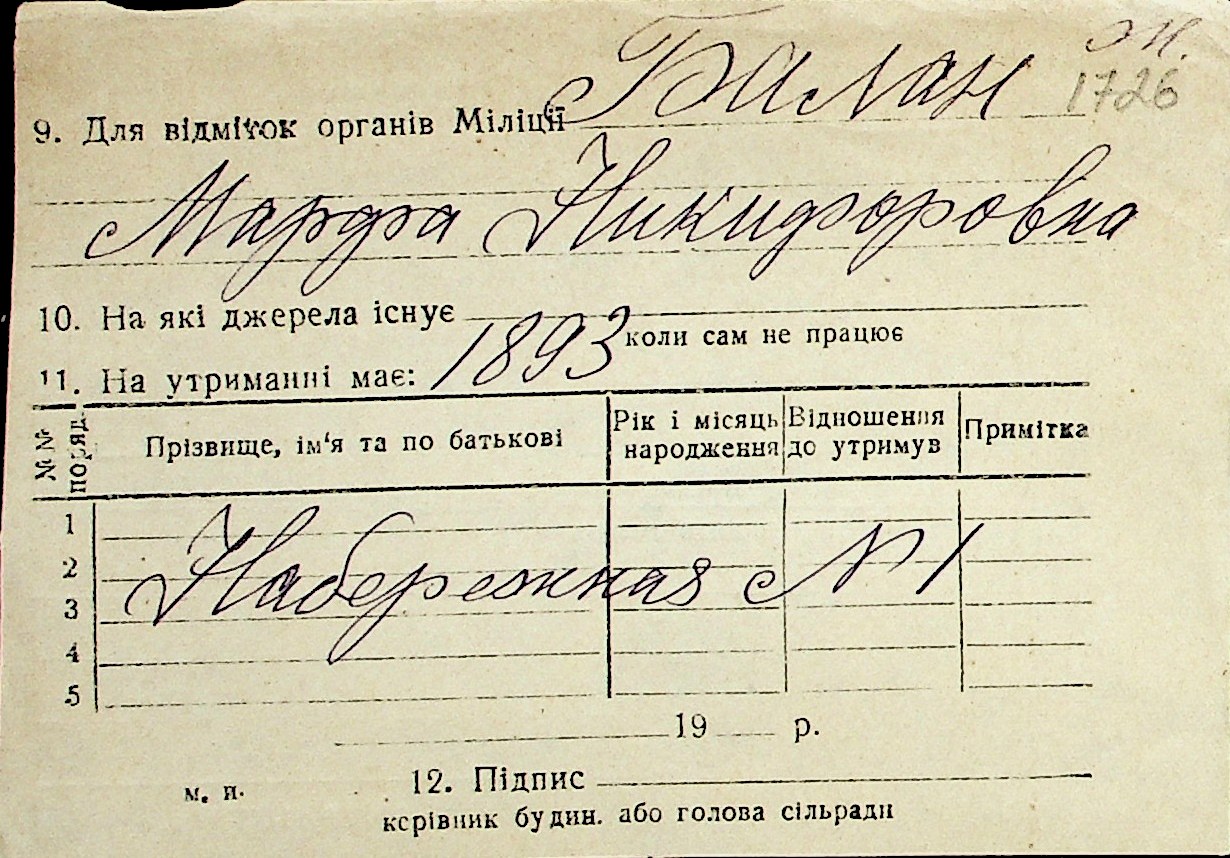 Балан
1726
9. Для відміток органів Міліції
Марфа Никифоровна
10. На які джерела існує
коли сам не працює
11. На утриманні має: 1893
№ № поряд. Прізвище, ім'я та по батькові Рік і місяць народження Відношення до утримув Примітка
1
2 Набережная № 1
3
4
5
19 р.
м. п.
12. Підпис
керівник будин. або голова сільради